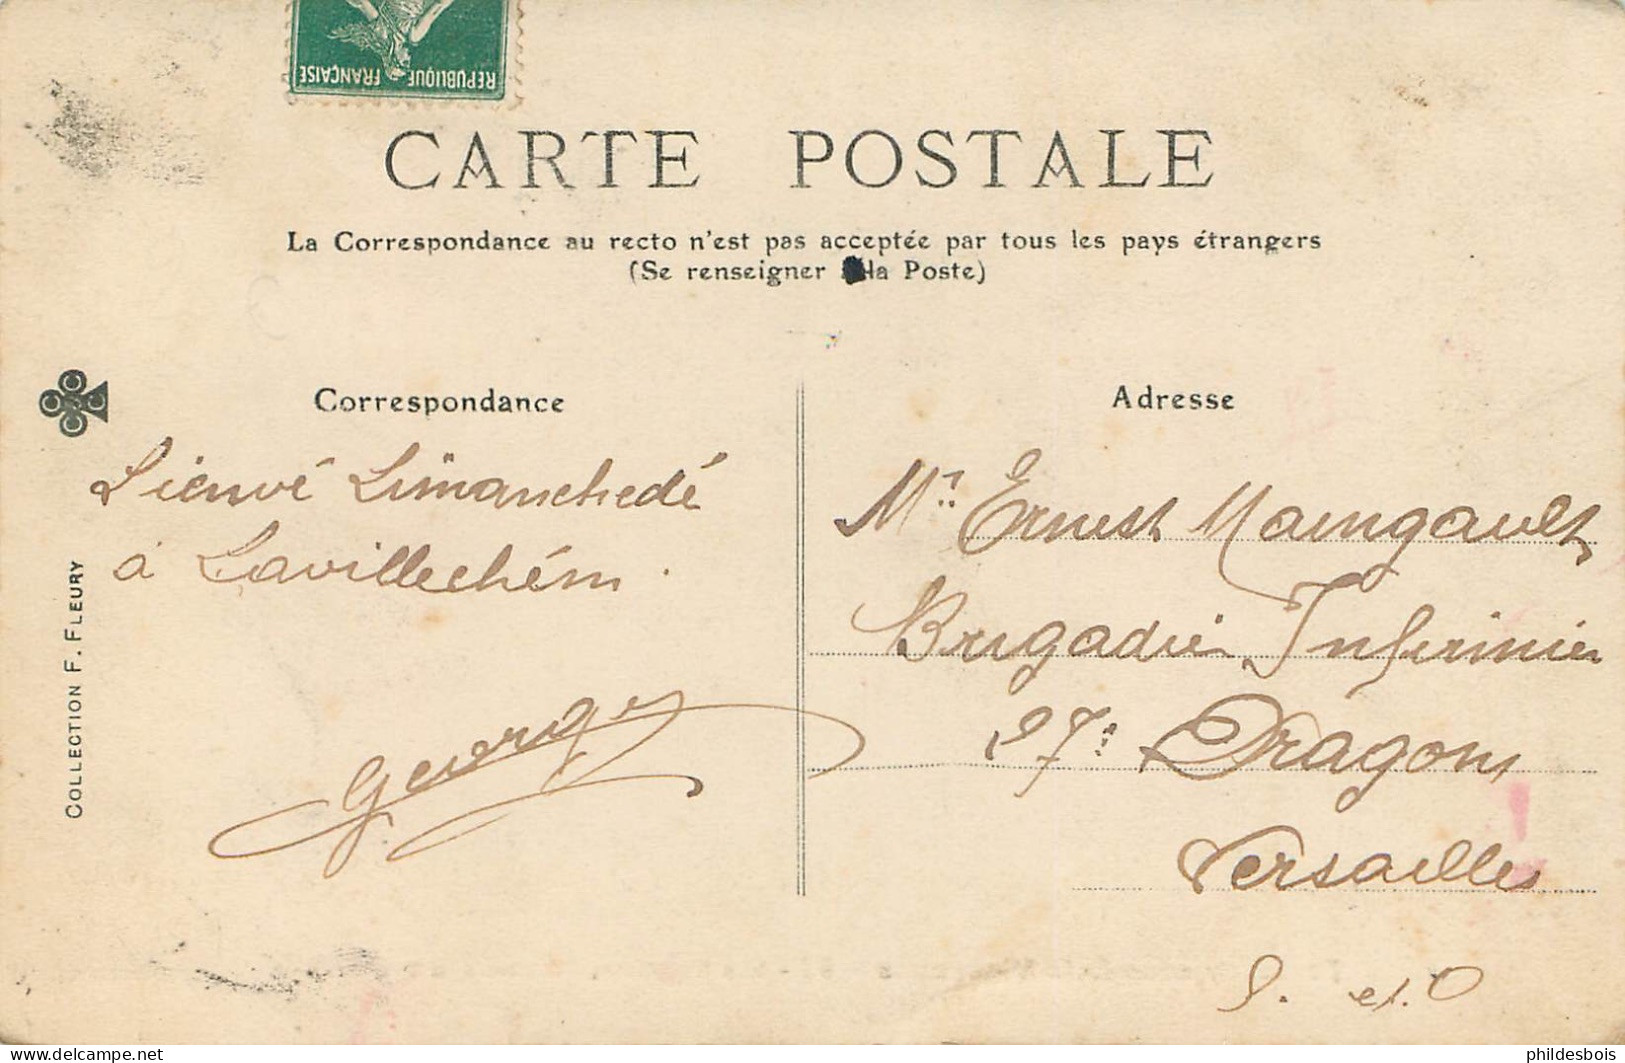 REPUBLIQUE FRANÇAISE
CARTE POSTALE
La Correspondance au recto n'est pas acceptée par tous les pays étrangers
(Se renseigner à la Poste)
Correspondance
à Lavillechém.
Georges
COLLECTION F. FLEURY
Adresse
Mr. Ernest Maingault
Brigadier Infirmier
27e Dragons
Versailles
S. et. O
phildesbois